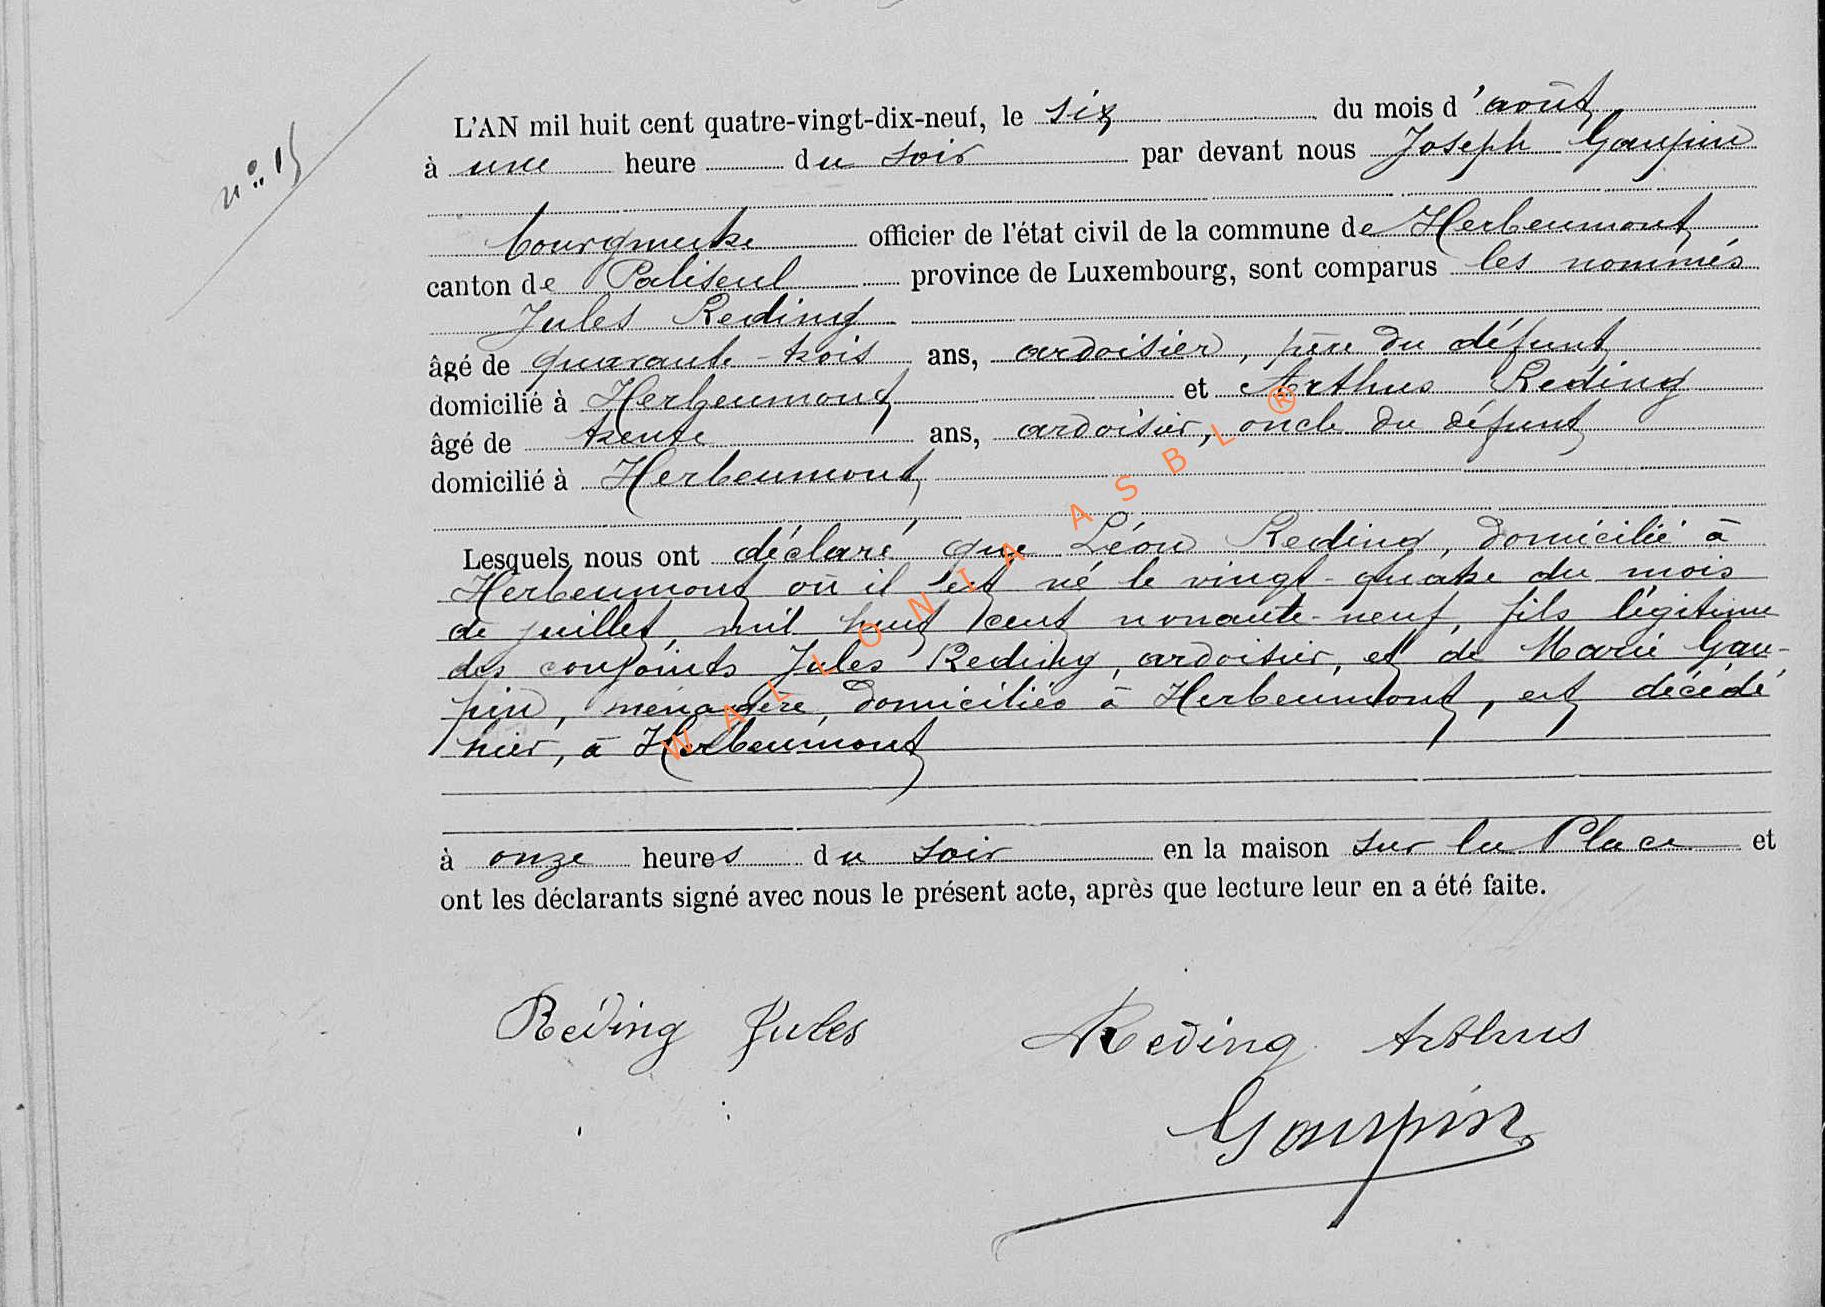 n° 15
L'AN mil huit cent quatre-vingt-dix-neuf, le six du mois d'août
à une heure du soir par devant nous Joseph Gaupin
bourgmestre officier de l'état civil de la commune de Herbeumont
canton de Paliseul province de Luxembourg, sont comparus les nommés
Jules Reding
âgé de quarante-trois ans, ardoisier, père du défunt
domicilié à Herbeumont et Arthur Reding
âgé de trente ans, ardoisier, oncle du défunt
domicilié à Herbeumont
Lesquels nous ont déclaré que Léon Reding, domicilié à
Herbeumont où il est né le vingt-quatre du mois
de juillet, mil huit cent nonante-neuf, fils légitime
des conjoints Jules Reding, ardoisier, et de Marie Gau-
pin, ménagère, domiciliés à Herbeumont, est décédé
hier, à Herbeumont
à onze heures du soir en la maison sur la Place et
ont les déclarants signé avec nous le présent acte, après que lecture leur en a été faite.
Reding Jules Reding Arthur
Gaupin
WALLONIA ASBL ®